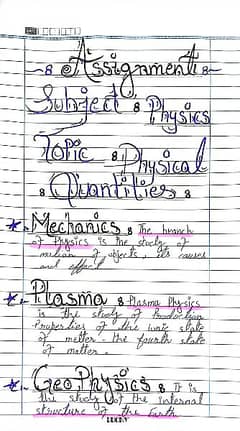 Assignment
Subject : Physics
Topic : Physical
Quantities :
Mechanics : The branch
of Physics is the study of
motion of objects, its causes
and effect
Plasma : Plasma Physics
is the study of Production
Properties of the ionic state
of matter - the fourth state
of matter.
GeoPhysics : It is
the study of the internal
structure of the Earth